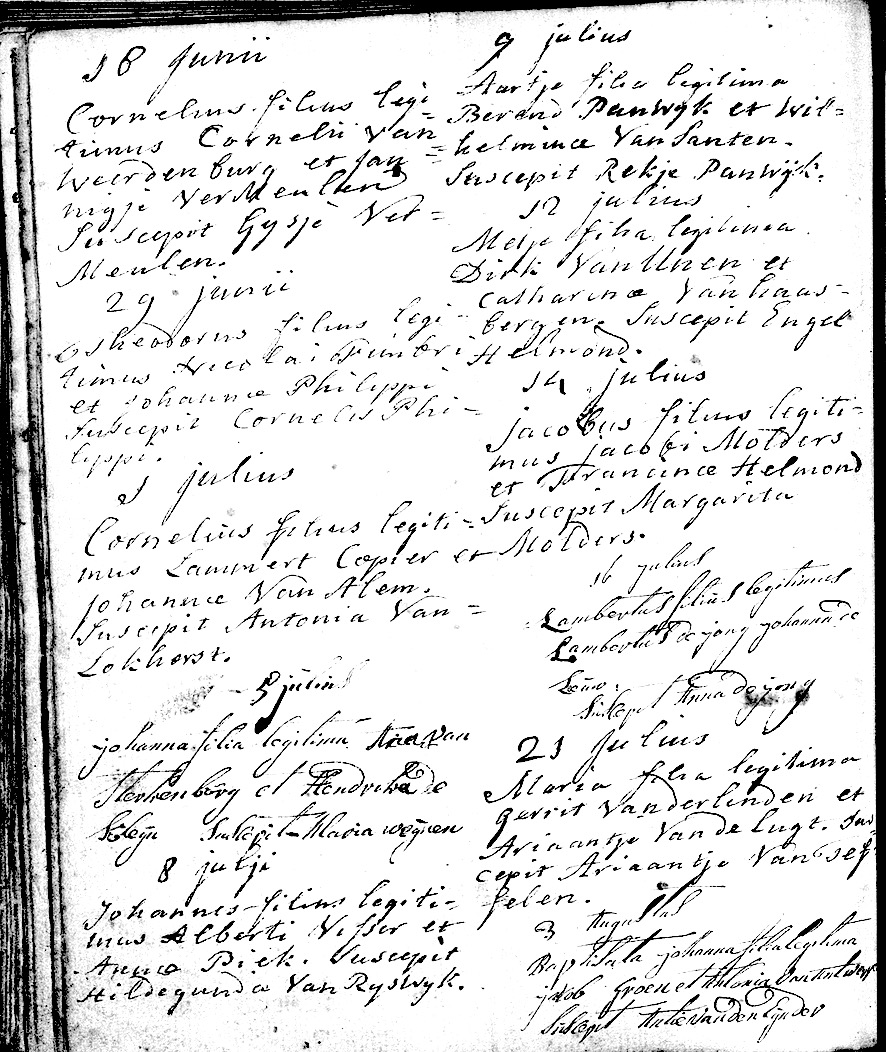 18 junii
Cornelius filius legi=
timus Cornelii Van
Weerdenburg et Jan=
nigje VerMeulen
Suscepit Gysje Ver=
Meulen.
29 junii
Theodorus filius legi-
timus Nicolai Timbri
et Johannæ Philippi
Suscepit Cornelis Phi-
lippi.
julius
Cornelius filius legiti-
mus Lammert Copier et
Johannæ Van Alem.
Suscepit Antonia Van=
Lokhorst.
5 julius
johanna filia legitima van
Sterkenberg et Hendrika de
Suscepit Maria weynen
8 julji
Johannes filius legiti-
mus Alberti Visser et
Annæ Biek. Suscepit
Hildegunda Van Ryswyk.
9 julius
Aartje filia legitima
Berend Panwyk et Wil=
helminæ Van Santen.
Suscepit Rekje Panwyk.
12 julius
Metje filia legitima
Dirk Van Unen et
Catharinæ Van haas-
bergen. Suscepit Engel
Helmond.
14 julius
jacobus filius legiti-
mus jacobi Molders
et Francinæ Helmond
Suscepit Margarita
Molders.
16 julius
Lambertus filius legitimus
Lambertus de jong johanna de
Leuw.
Suscepit Anna de jong
julius
Maria filia legitima
Gerrit Vanderlinden et
Ariaantje Van de lugt. Sus=
cepit Ariaantje Van Sef=
felen.
3 Augustus
Baptisata johanna filia legitima
jakob Groen et Antonia Van
Suscepit van den